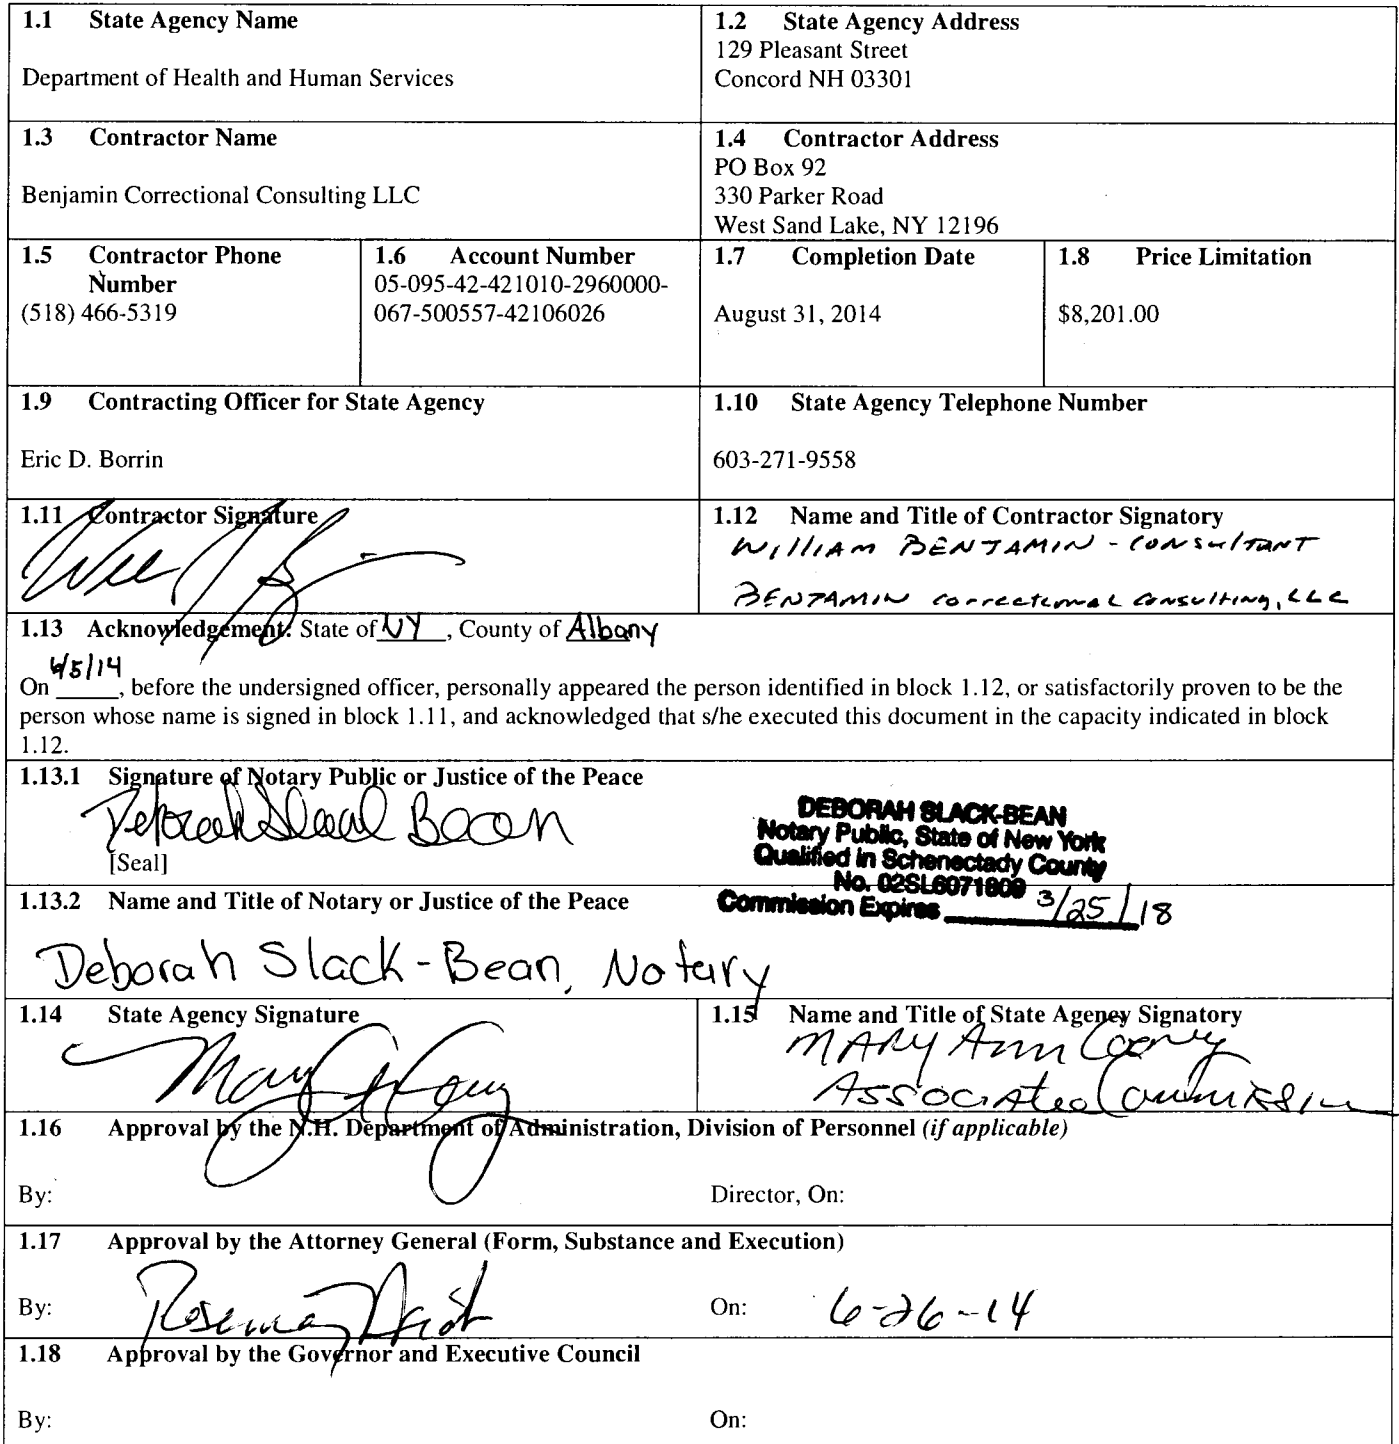 1.1 State Agency Name
Department of Health and Human Services
1.2 State Agency Address
129 Pleasant Street
Concord NH 03301
1.3 Contractor Name
Benjamin Correctional Consulting LLC
1.4 Contractor Address
PO Box 92
330 Parker Road
West Sand Lake, NY 12196
1.5 Contractor Phone
Number
(518) 466-5319
1.6 Account Number
05-095-42-421010-2960000-
067-500557-42106026
1.7 Completion Date
August 31, 2014
1.8 Price Limitation
$8,201.00
1.9 Contracting Officer for State Agency
Eric D. Borrin
1.10 State Agency Telephone Number
603-271-9558
1.11 Contractor Signature
1.12 Name and Title of Contractor Signatory
William BENJAMIN - CONSultANT
BENJAMIN correctional consulting, LLC
1.13 Acknowledgement: State of NY, County of Albany
On 6/5/14, before the undersigned officer, personally appeared the person identified in block 1.12, or satisfactorily proven to be the
person whose name is signed in block 1.11, and acknowledged that s/he executed this document in the capacity indicated in block
1.12.
1.13.1 Signature of Notary Public or Justice of the Peace
Deborah Slack Bean
[Seal]
DEBORAH SLACK-BEAN
Notary Public, State of New York
Qualified in Schenectady County
No. 02SL6071809
Commission Expires 3/25/18
1.13.2 Name and Title of Notary or Justice of the Peace
Deborah Slack-Bean, Notary
1.14 State Agency Signature
1.15 Name and Title of State Agency Signatory
MARY Ann Cooney
Associate Commission
1.16 Approval by the N.H. Department of Administration, Division of Personnel (if applicable)
By:
Director, On:
1.17 Approval by the Attorney General (Form, Substance and Execution)
By: Rosemary
On: 6-26-14
1.18 Approval by the Governor and Executive Council
By:
On: